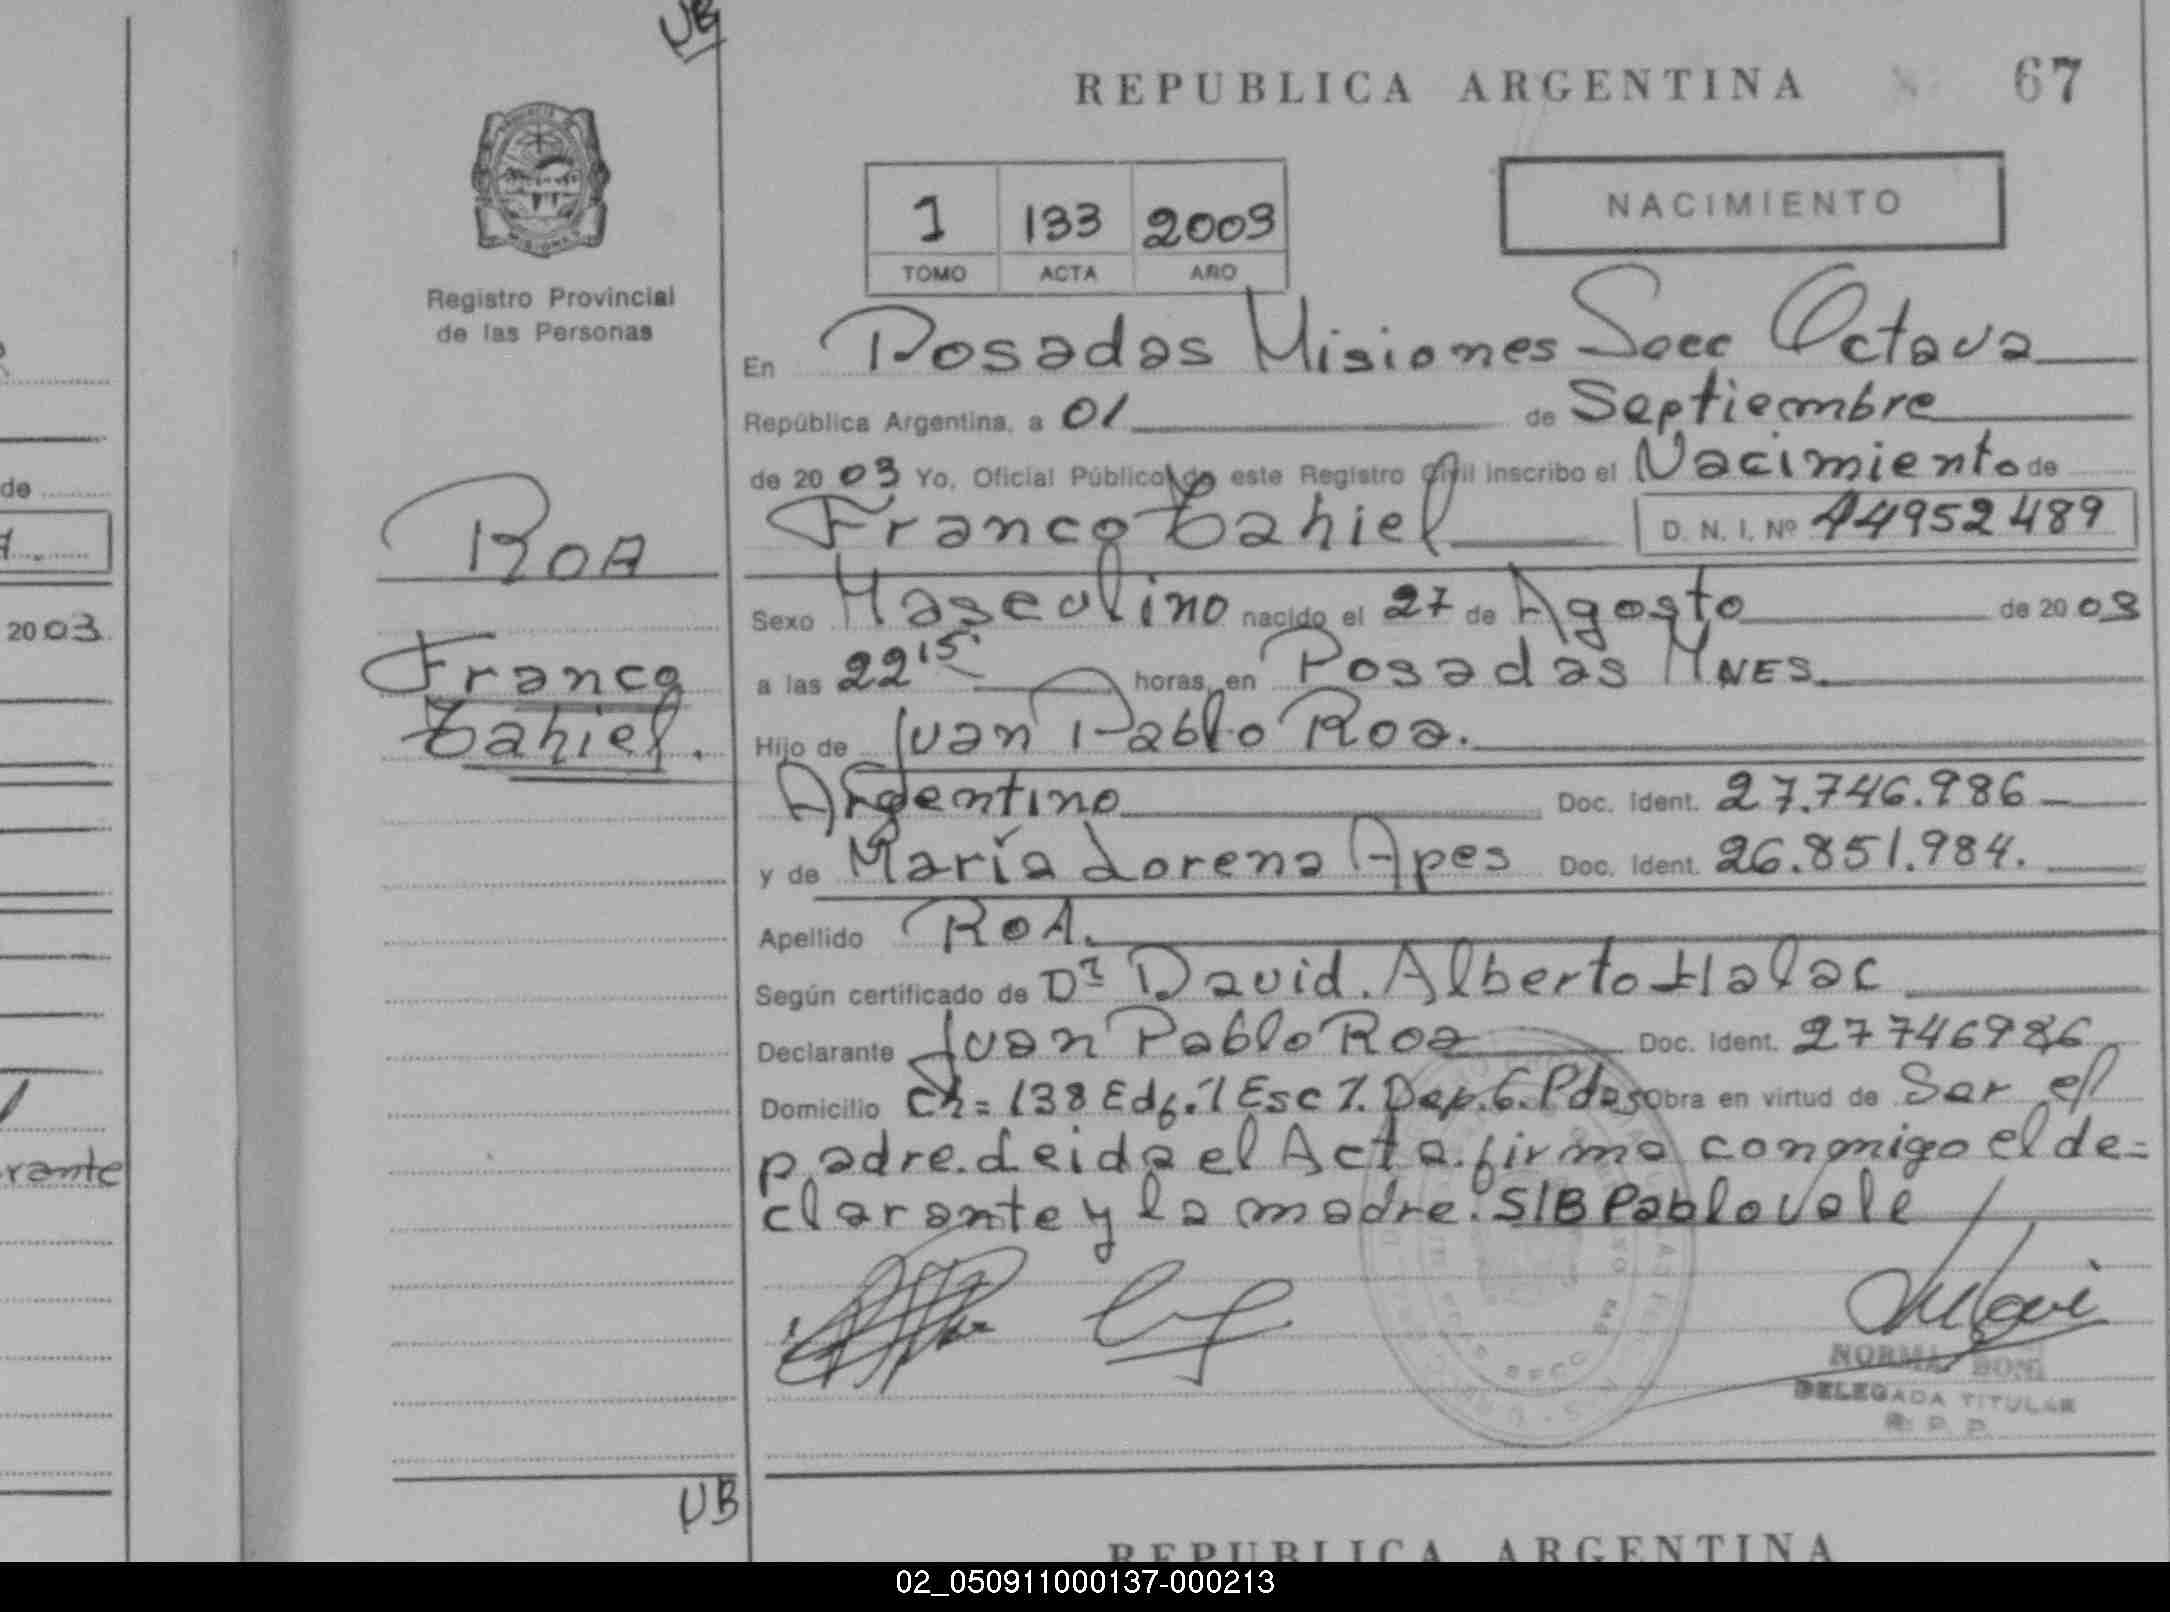 UB
REPUBLICA ARGENTINA 67
1 133 2003
TOMO ACTA AÑO
NACIMIENTO
Registro Provincial
de las Personas
En Posadas Misiones Secc Octava
República Argentina, a 01 de Septiembre
de 2003 Yo, Oficial Público de este Registro Civil inscribo el Nacimiento de
Franco Tahiel D. N. I. Nº 44952489
ROA
Sexo Masculino nacido el 27 de Agosto de 2003
Franco
Tahiel.
a las 22 15' horas, en Posadas MNES.
Hijo de Juan Pablo Roa.
Argentino Doc. Ident. 27.746.986
y de María Lorena Apes Doc. Ident. 26.851.984.
Apellido ROA.
Según certificado de Dr David. Alberto Halac
Declarante Juan Pablo Roa Doc. Ident. 27746986
Domicilio Ch= 138 Edf. 1 Esc 1. Dep. 6. Pdas Obra en virtud de Ser el
padre. Leida el Acta. firma conmigo el de=
clarante y la madre. S/B Pablo vale
NORMA
DELEGADA TITULAR
R. P. P.
UB
REPUBLICA ARGENTINA
de
2003
rante
02_050911000137-000213